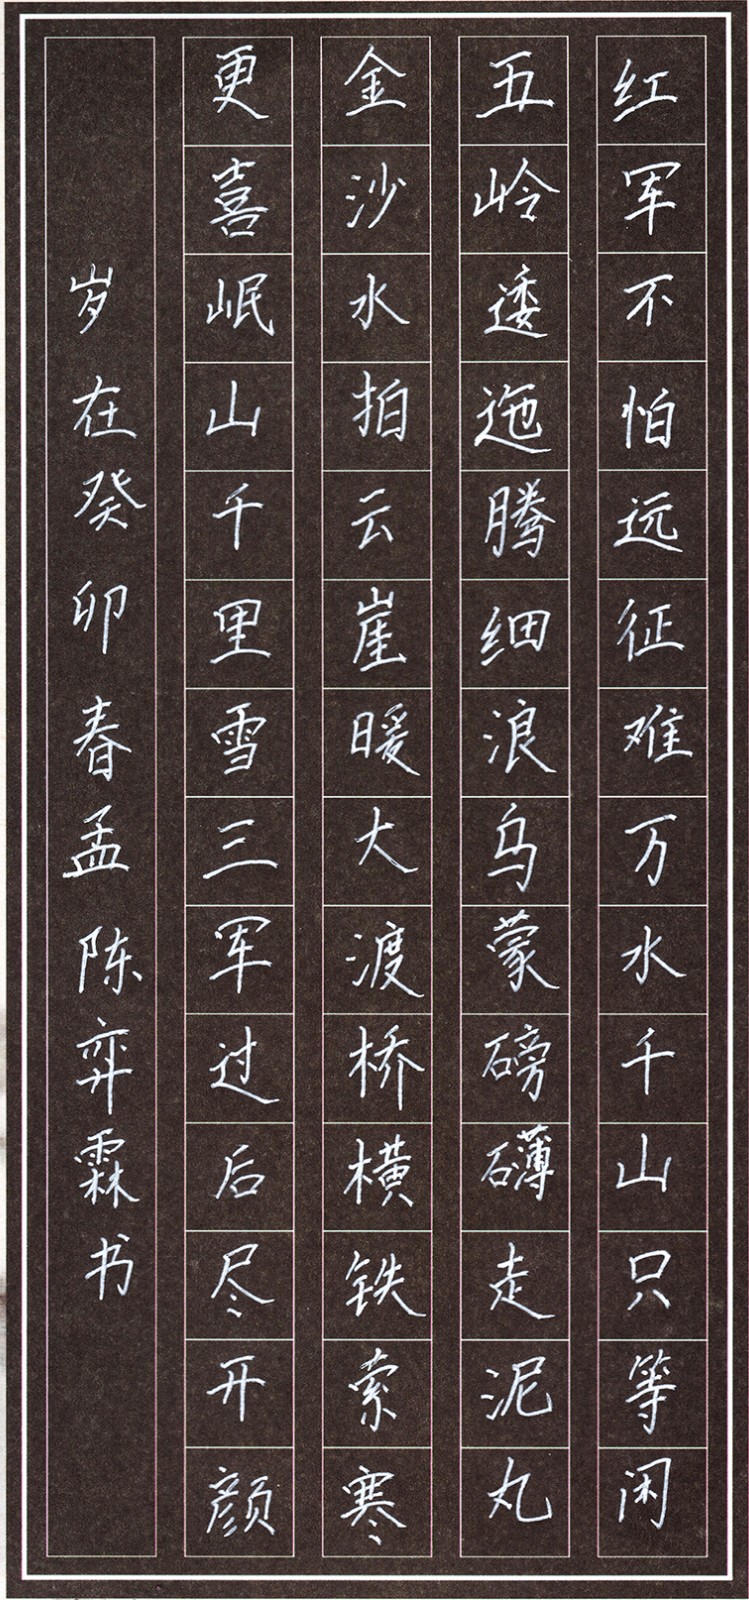 红军不怕远征难万水千山只等闲
五岭逶迤腾细浪乌蒙磅礴走泥丸
金沙水拍云崖暖大渡桥横铁索寒
更喜岷山千里雪三军过后尽开颜
岁在癸卯春孟陈弈霖书